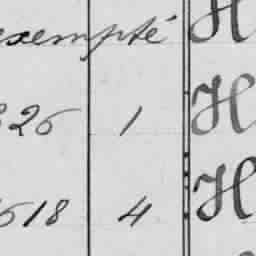 exempté H
326 1 H
1618 4 H